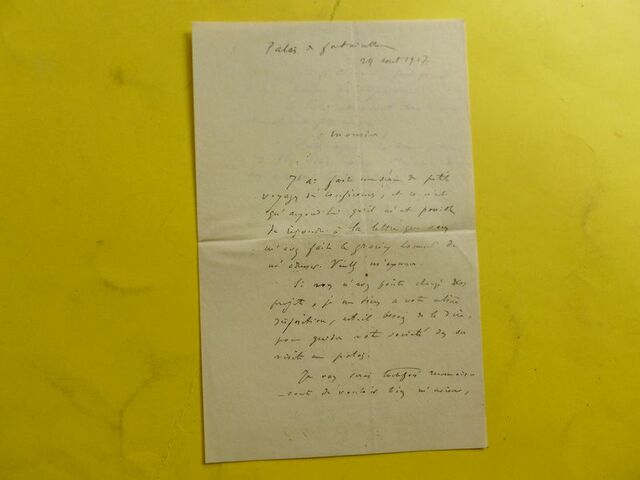 Palais de Fontainebleau
29 août 1907
Monsieur,
J'ai fait une série de petits
voyages, et ce n'est
qu'aujourd'hui qu'il m'est possible
de répondre à la lettre que vous
m'avez fait le gracieux honneur de
m'adresser. Veuillez m'excuser.
Si vous n'avez point changé vos
projets, je me tiens à votre entière
disposition, est-il besoin de le dire,
pour guider votre société dans sa
visite au palais.
Je vous serais reconnais-
-sant de vouloir bien m'aviser,